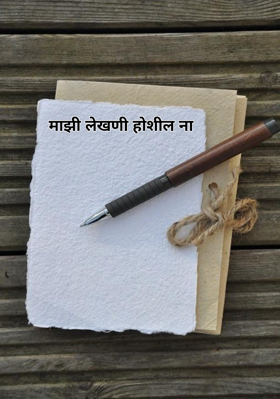 माझी लेखणी होशील ना